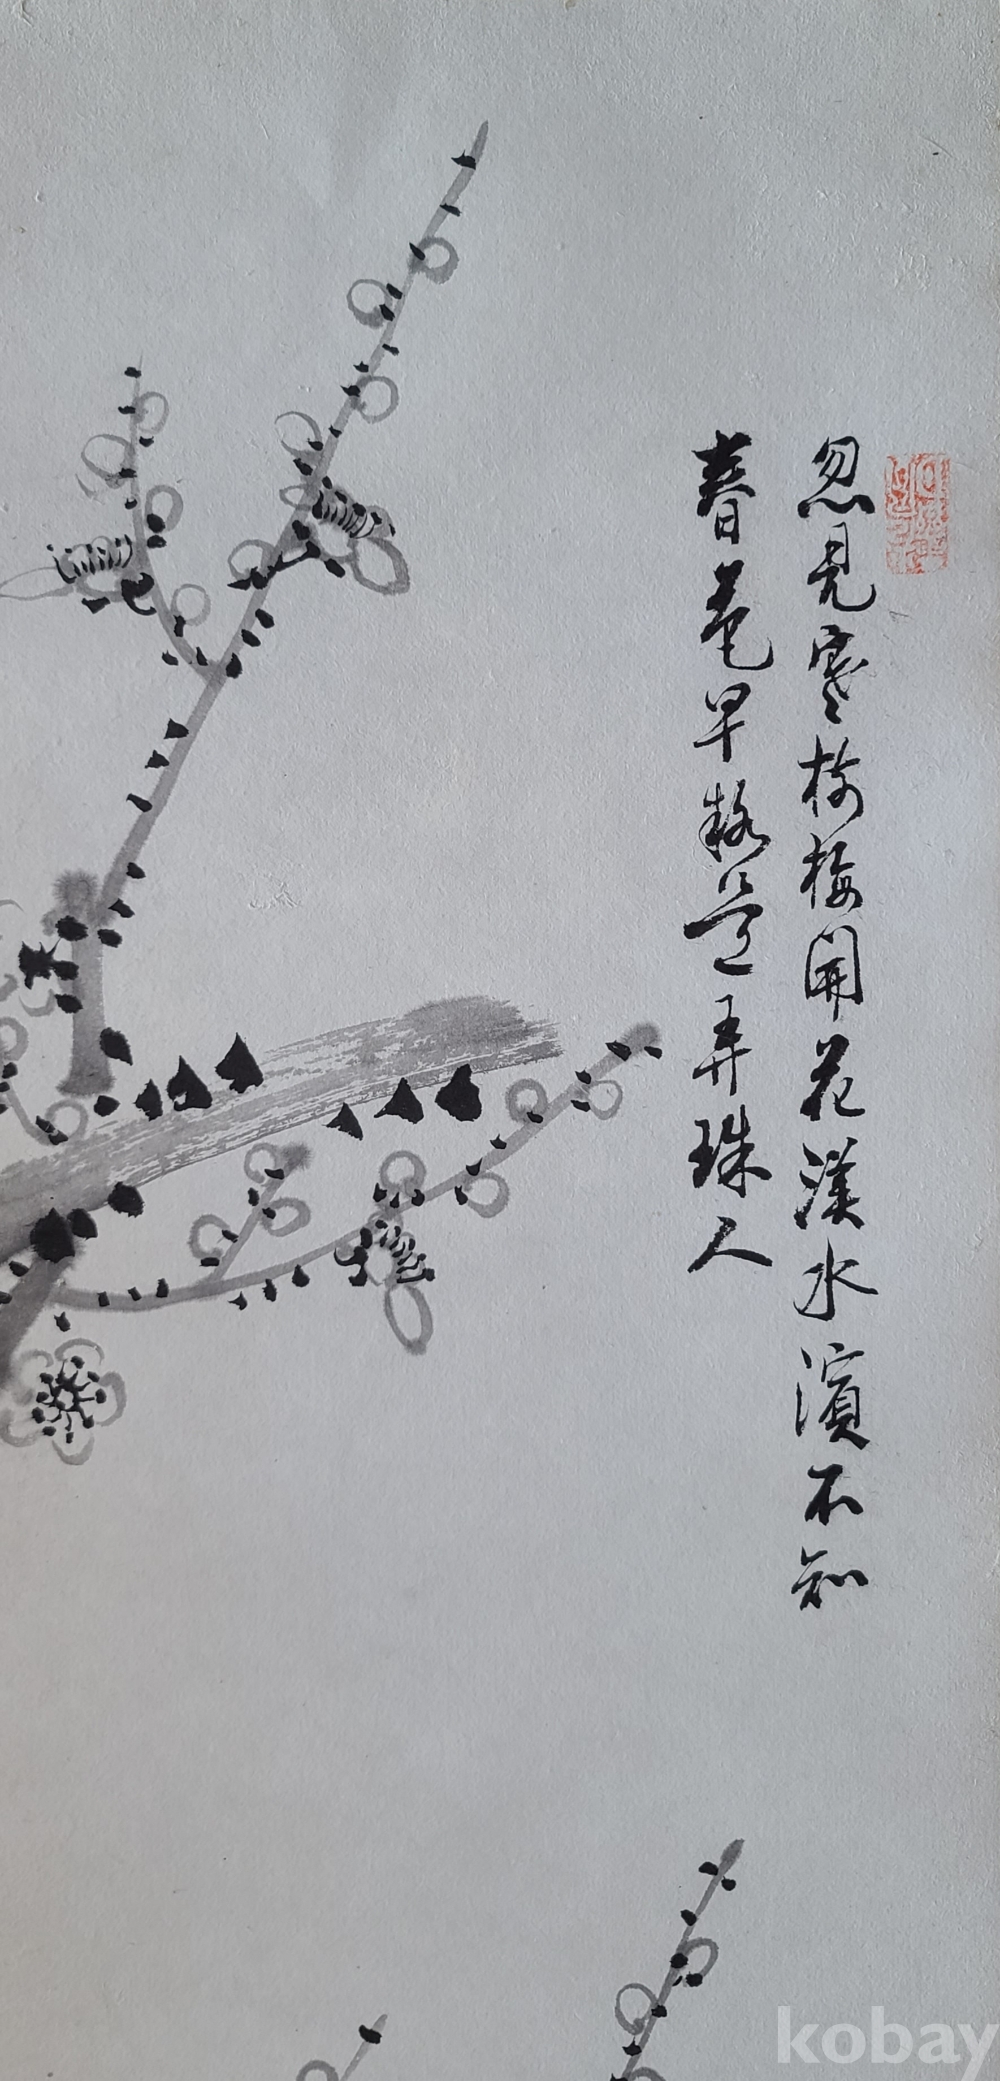 忽見寒樹梅開花漢水濱不知
春色早疑是弄珠人
kobay